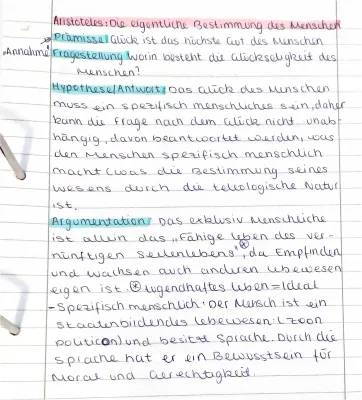 Aristoteles: Die eigentliche Bestimmung des Menschen
Prämisse: Glück ist das höchste Gut des Menschen
"Annahme" Fragestellung: Worin besteht die Glückseligkeit des
Menschen?
Hypothese/Antwort: Das Glück des Menschen
muss ein spezifisch menschliches sein, daher
kann die Frage nach dem Glück nicht unab-
hängig, davon beantwortet werden, was
den Menschen spezifisch menschlich
macht (was die Bestimmung seines
wesens durch die teleologische Natur
ist.
Argumentation: Das exklusiv Menschliche
ist allein das „Fähige leben des ver-
nünftigen Seelenlebens“⊛, da Empfinden
und Wachsen auch anderen Lebewesen
eigen ist. ⊛ tugendhaftes leben = Ideal
- Spezifisch menschlich: Der Mensch ist ein
staatenbildendes lebewesen: (zoon
politicon) und besitzt Sprache. Durch die
Sprache hat er ein Bewusstsein für
Moral und Gerechtigkeit.